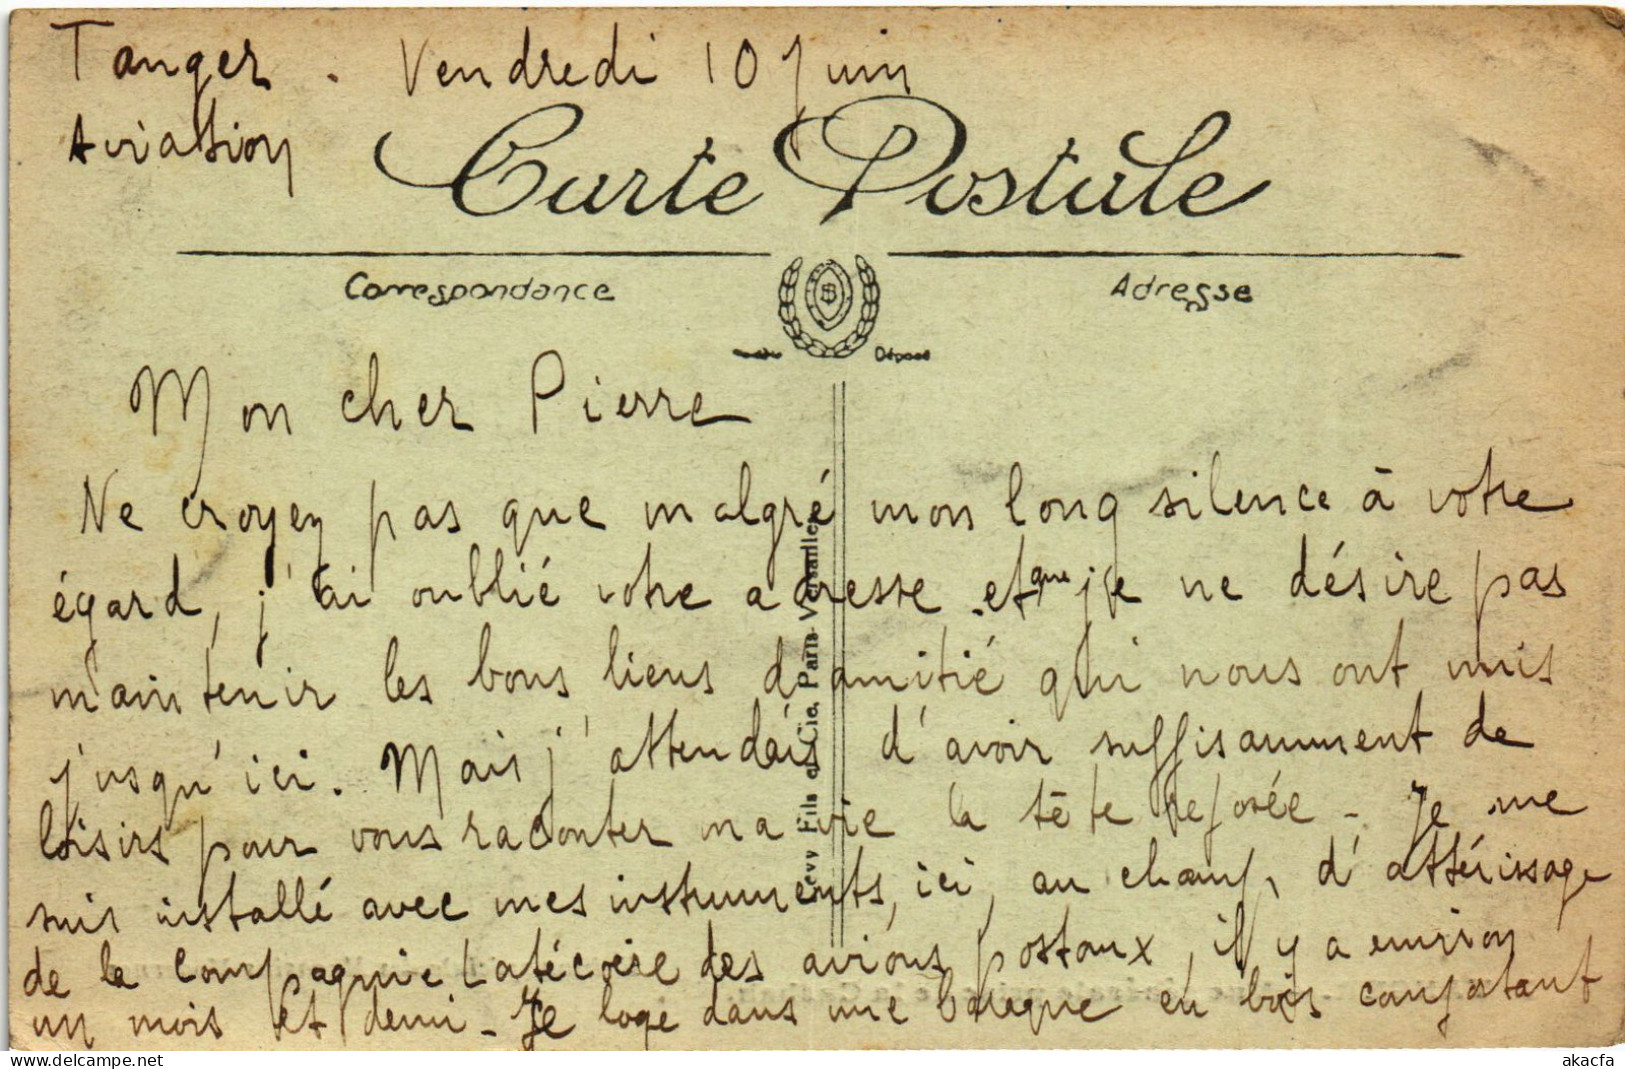 Tanger. Vendredi 10 Juin
Aviation
Carte Postale
Correspondance
Adresse
Déposé
Mon cher Pierre
Ne croyez pas que malgré mon long silence à votre
égard, j'ai oublié votre adresse et que je ne désire pas
maintenir les bons liens d'amitié qui nous ont unis
jusqu'ici. Mais j'attendais d'avoir suffisamment de
loisirs pour vous raconter ma vie la tête reposée - Je me
suis installé avec mes instruments, ici, au champ d'attérissage
de la Compagnie Latécoère des avions postaux, il y a environ
un mois et demi - Je loge dans une baraque en bois confortant
Lévy Fils & Cie, Paris-Versailles
akacfa